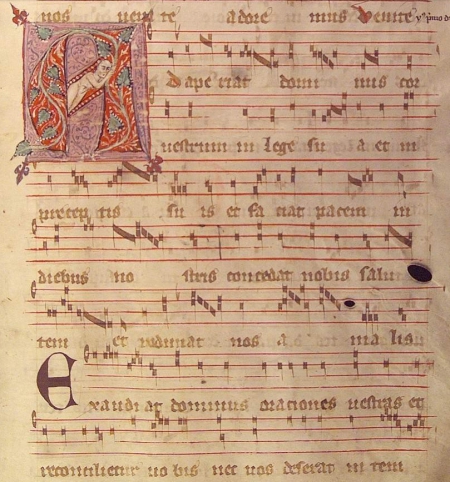 nos Uenite adore mus Venite
Dape riat domi nus cor
uestrum in lege su a et in
precep tis su is et fa ciat pacem in
diebus no stris concedat nobis salu
tem et redimat nos a ma lis
Exaudi at dominus orationes uestras et
reconcilietur uo bis nec uos deserat in tem